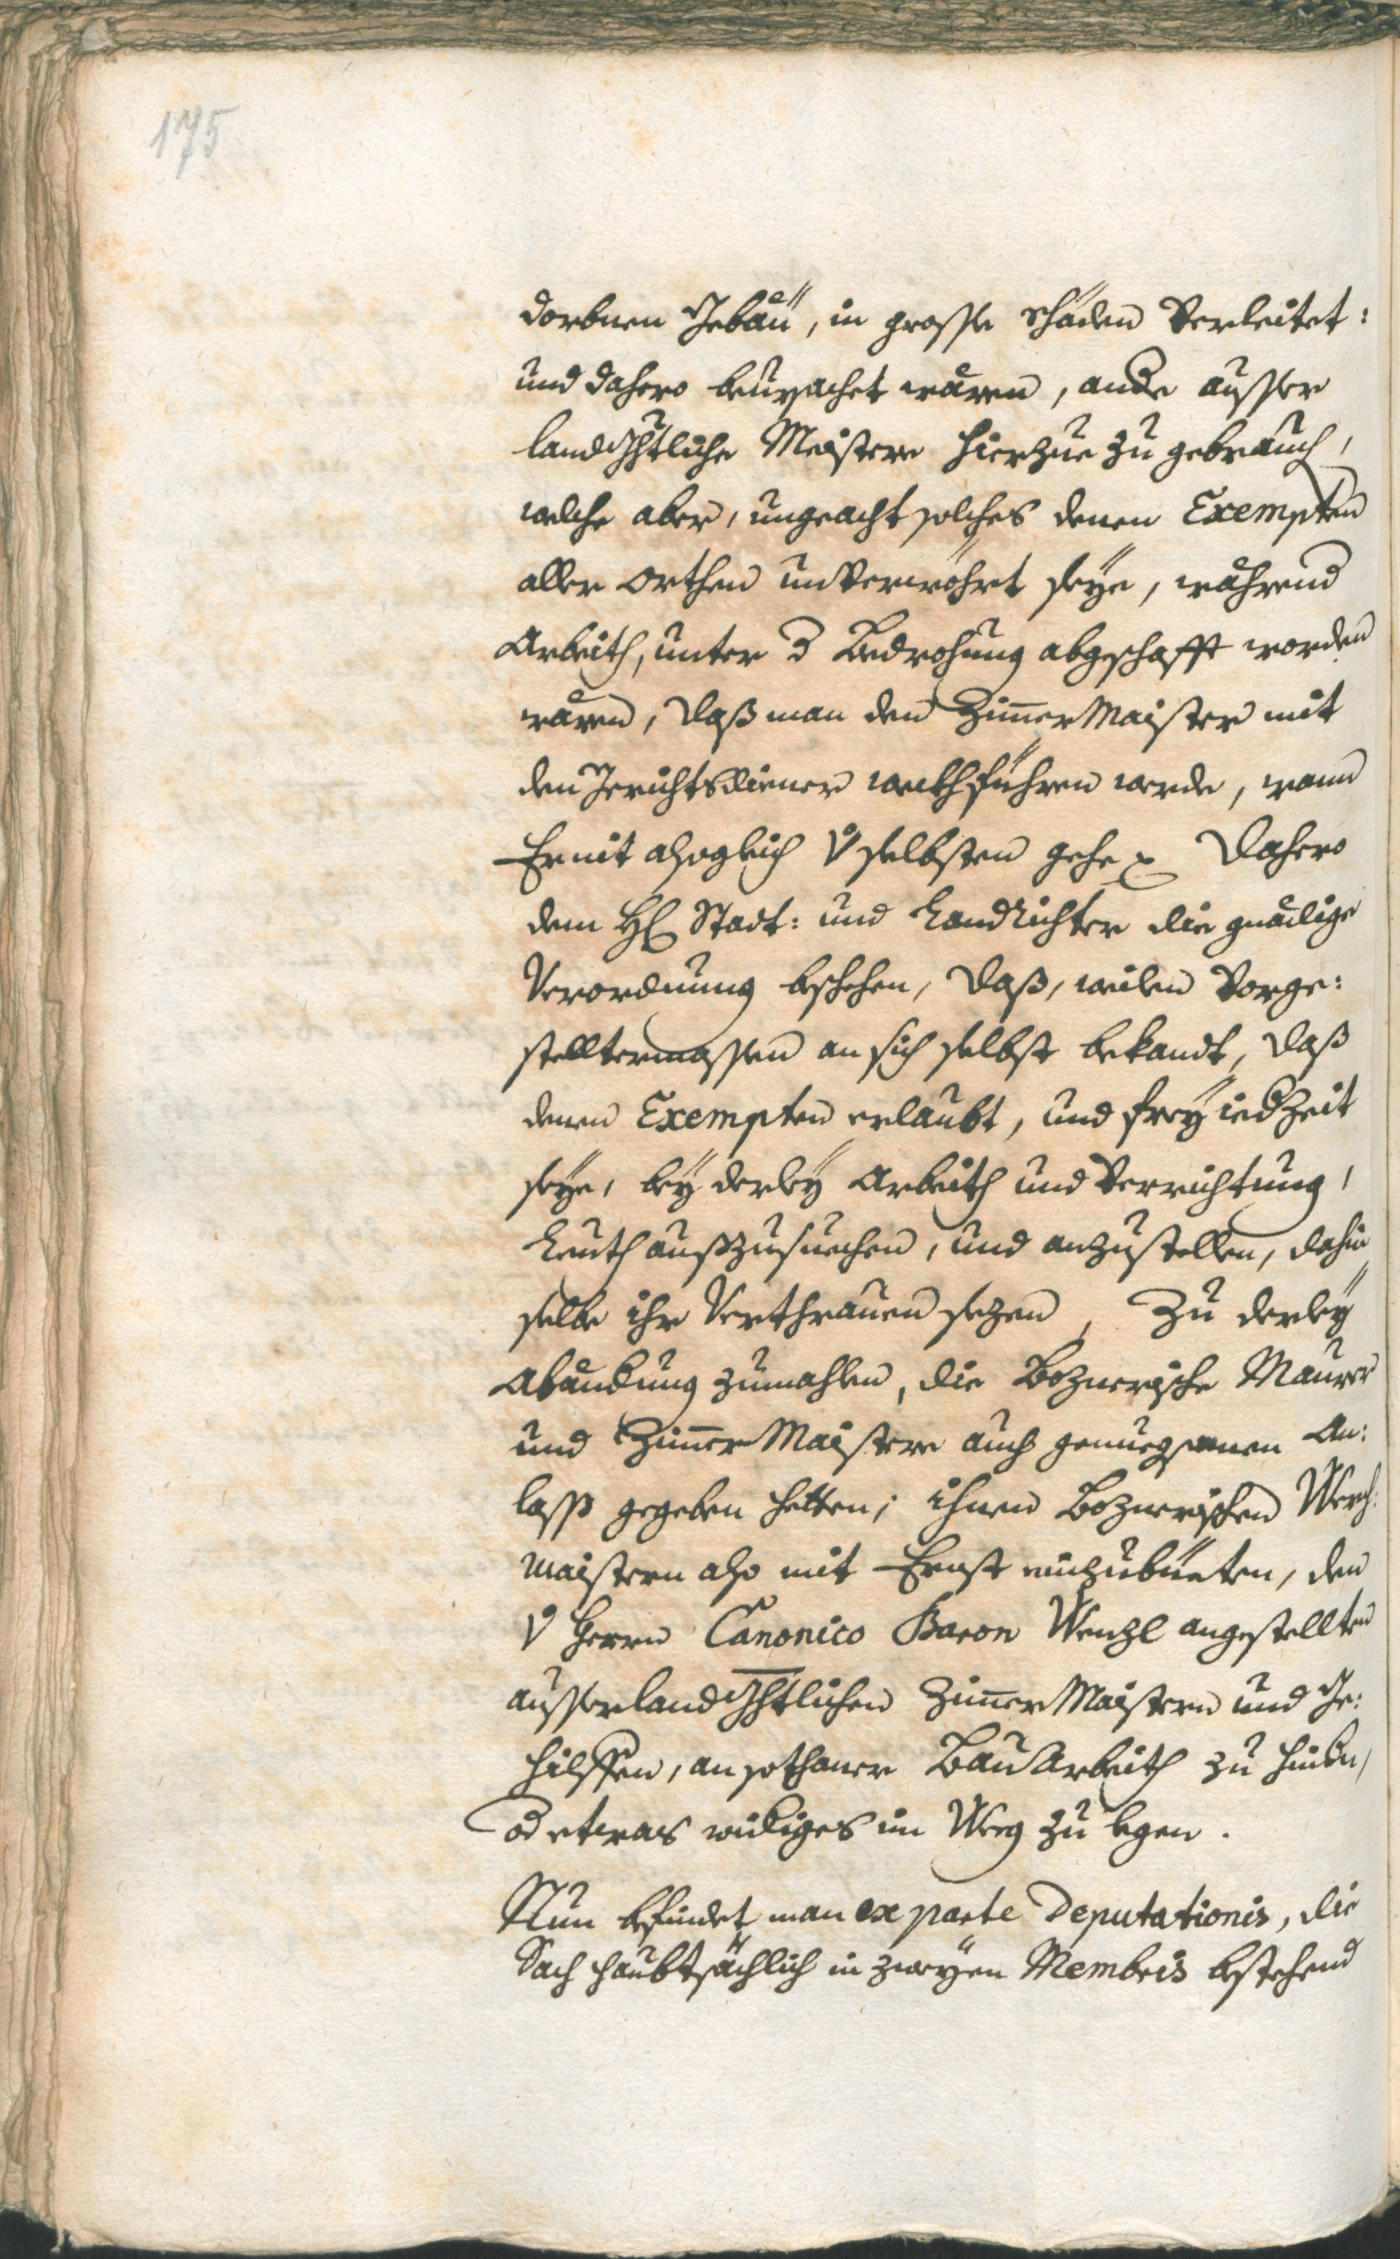 175
dorbnen Gebäu, in grosse schäden Verleitet:
und dahero beursachet wären, andre ausser
landgrhtliche Meistere hierzue zu gebrauch,
welche aber, ungeacht solches denen Exempten
aller Orthen unverwöhrt seye, während
Arbeith, unter d Bedrohung abgeschafft worden
wären, daß man den Zimer Maister mit
den Gerichtsdiener wekhführen werde, wann
Er nit alsogleich v selbsten gehe, Dahero
dem H Stadt: und Landrichter die gnädige
Verordnung beschehen, daß, weilen Vorge:
stelltermassen an sich selbst bekandt, daß
denen Exempten erlaubt, und frey iedZeit
seye, bey derley Arbeith und Verrichtung,
Leuth außzusuechen, und anzustellen, dahin
selbe ihr Verthrauen sezen, Zu derley
Abändung zumahlen, die Boznerische Maurer
und Zimer Maistere auch genuegsamen An:
lass gegeben hetten; ihnen Boznerischen Werch:
maistern also mit Ernst einzubüeten, den
v Herrn Canonico Baron Wenzl angestellten
ausserlandgrhtlichen Zimer Maistern und Ge:
hilffen, an sothaner Bau Arbeith zu hindn,
od etwas widiges im Weeg zu legen.
Nun befindet man ex parte Deputationis, die
Sach haubtsächlich in zweyen Membris bestehend